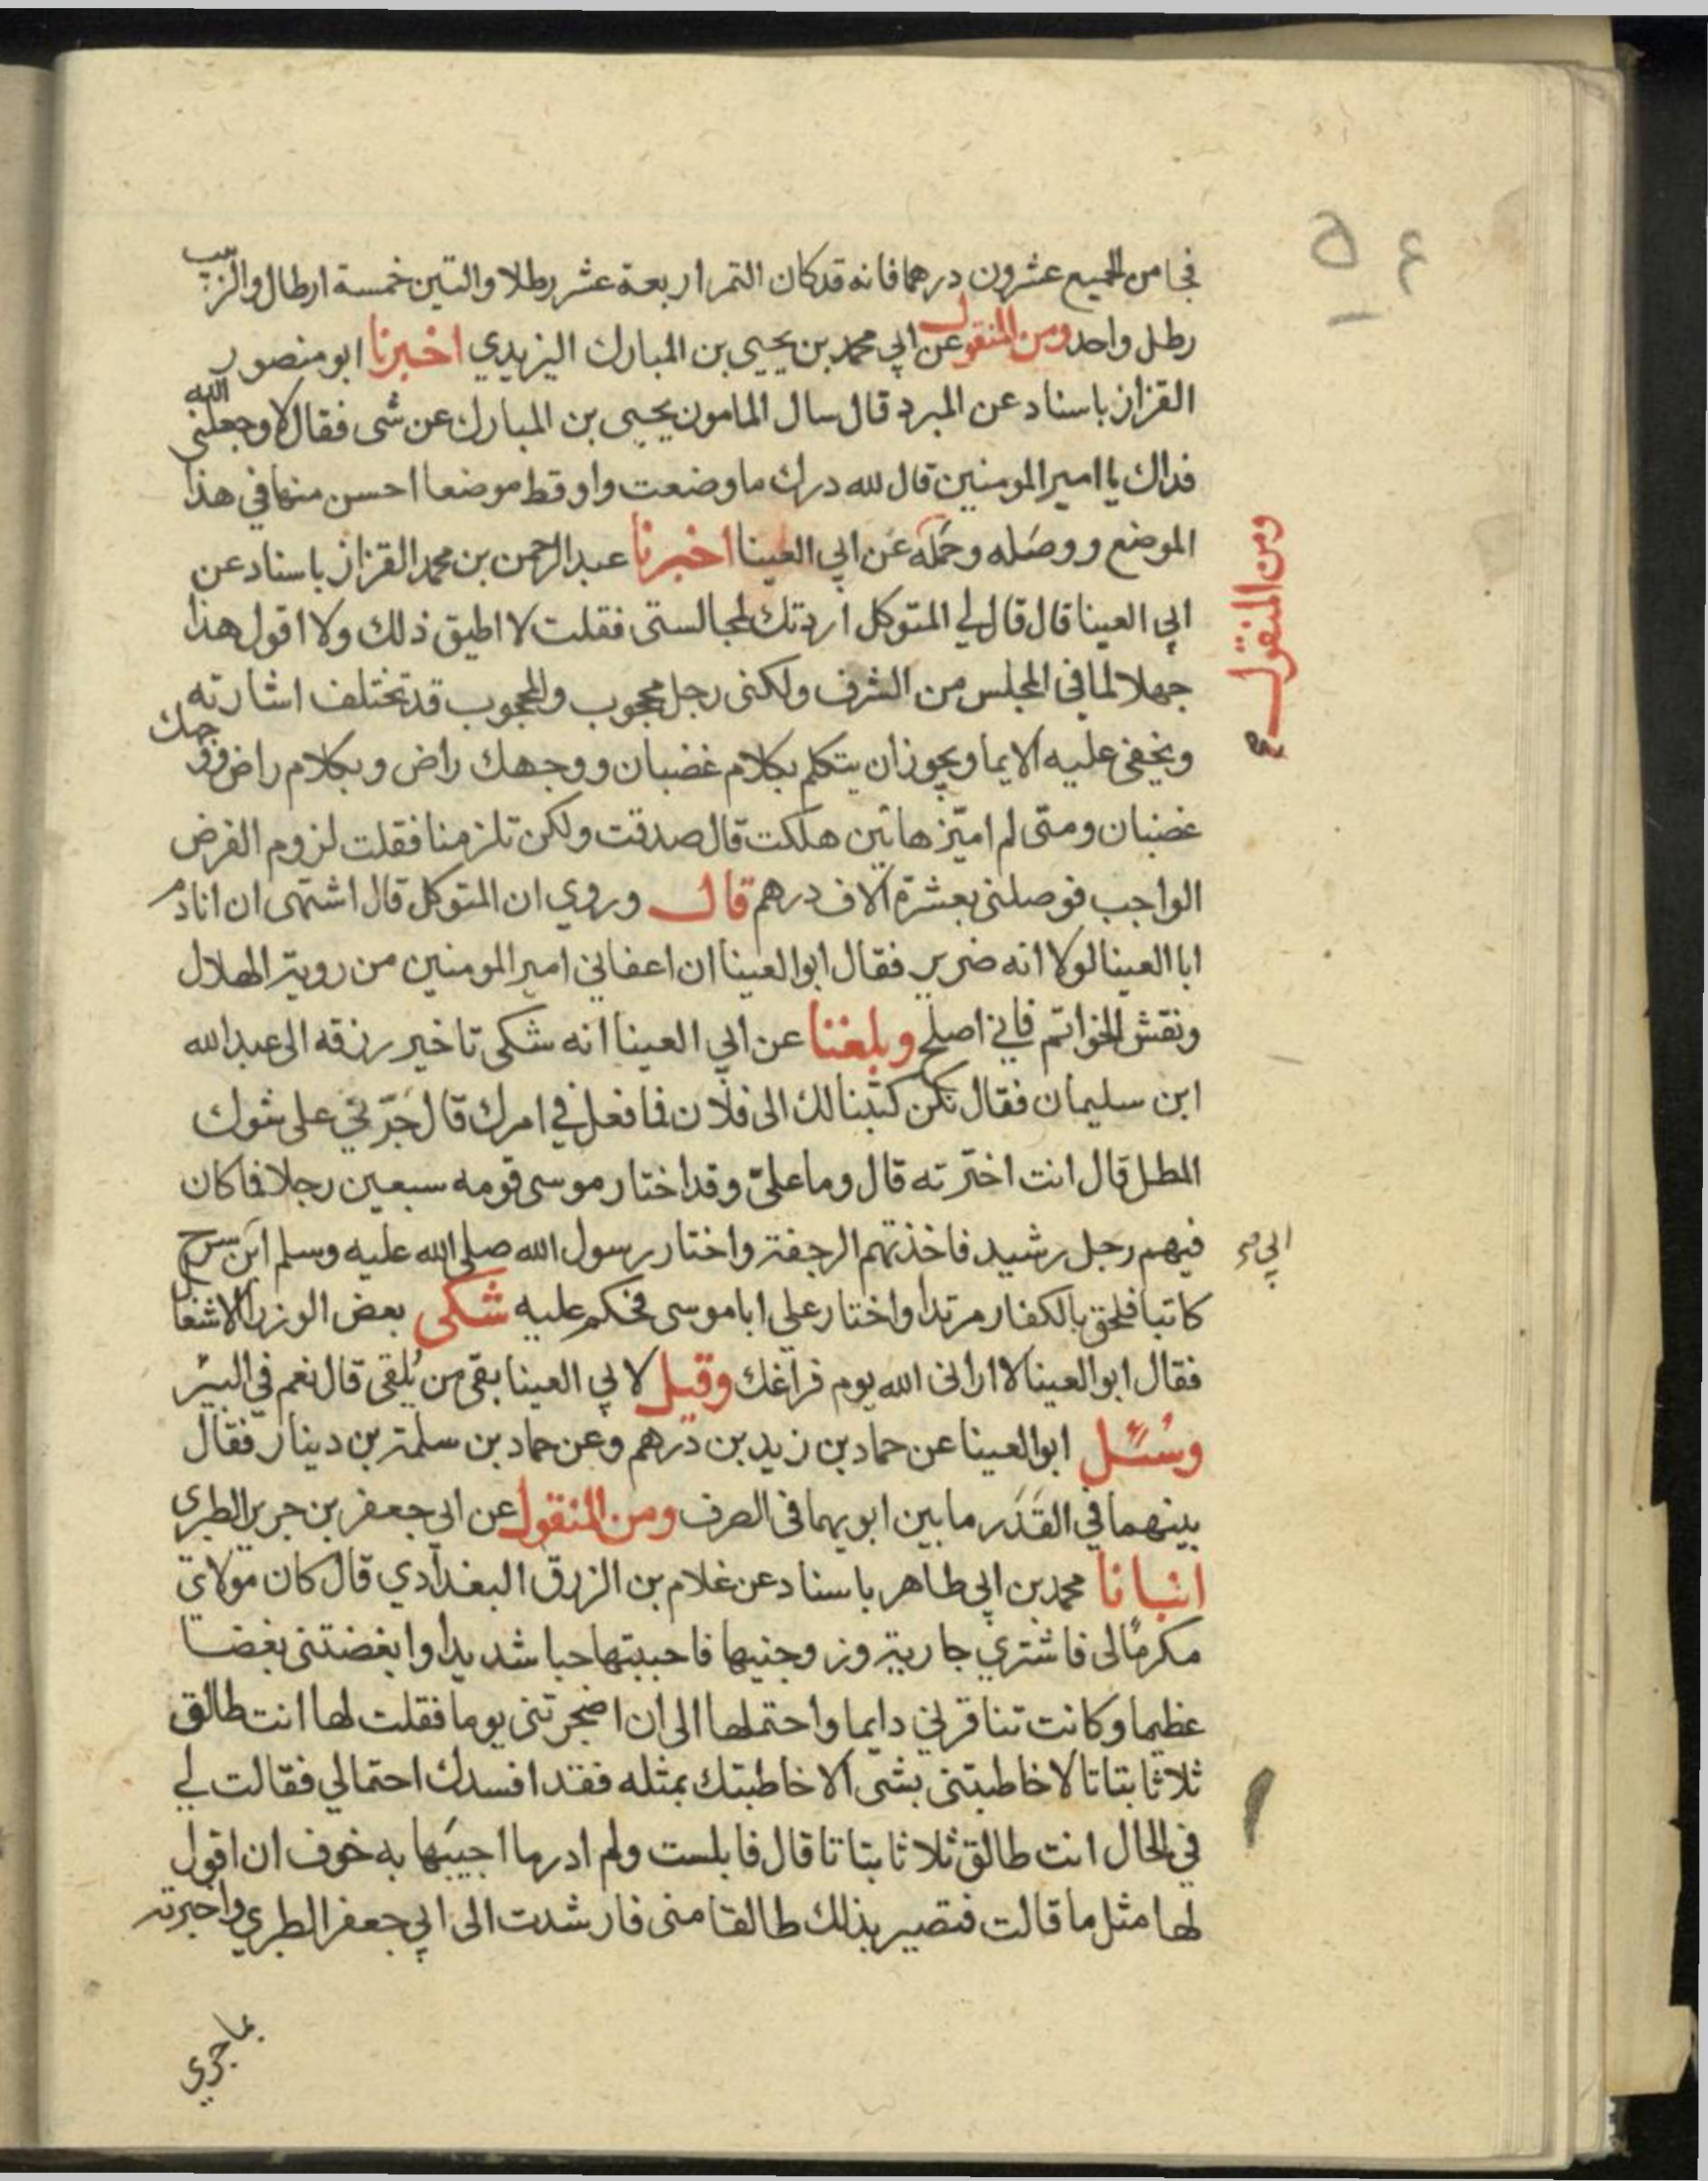 ٥٤
فجا من الجميع عشرون درهما فانه قد كان التمر اربعة عشر رطلا والتين خمسة ارطال والزبيب
رطل واحد ومن المنقول عن ابي محمد بن يحيى بن المبارك اليزيدي اخبرنا ابو منصور
القزاز باسناد عن المبرد قال سال المامون يحيى بن المبارك عن شى فقال لا وجعلني الله
فداك يا امير المومنين قال لله درك ما وضعت واو قط موضعا احسن منها في هذا
الموضع ووصله وحمله عن ابي العينا اخبرنا عبد الرحمن بن محمد القزاز باسناد عن
ومن المنقول صح
ابي العينا قال قال لي المتوكل اردتك لمجالستى فقلت لا اطيق ذلك ولا اقول هذا
جهلا لما في المجلس من الشرف ولكنى رجل محجوب والمحجوب قد تختلف اشارته
ويخفى عليه الايما ويجوز ان يتكلم بكلام غضبان ووجهك راض وبكلام راض ووجهك
غضبان ومتى لم اميّز هاتين هلكت قال صدقت ولكن تلزمنا فقلت لزوم الفرض
الواجب فوصلنى بعشرة آلاف درهم قال وروي ان المتوكل قال اشتهى ان انادم
ابا العينا لولا انه ضرير فقال ابو العينا ان اعفاني امير المومنين من روية الهلال
ونقش الخواتم فاني اصلح وبلغنا عن ابي العينا انه شكى تاخير رزقه الى عبد الله
ابن سليمان فقال نكن كتبنا لك الى فلان فما فعل في امرك قال جرّني على شوك
المطل قال انت اخترته قال وما عليّ وقد اختار موسى قومه سبعين رجلا فما كان
فيهم رجل رشيد فاخذتهم الرجفة واختار رسول الله صلى الله عليه وسلم ابن سرح
ابي صح
كاتبا فلحق بالكفار مرتدا واختار علي ابا موسى فحكم عليه شكى بعض الوزرا الاشغال
فقال ابو العينا لا ارانى الله يوم فراغك وقيل لابي العينا بقى من يُلقى قال نعم في البئر
وسُئل ابو العينا عن حماد بن زيد بن درهم وعن حماد بن سلمة بن دينار فقال
بينهما في القَدَر ما بين ابويهما في الصرف ومن المنقول عن ابي جعفر بن جرير الطبرى
انبانا محمد بن ابي طاهر باسناد عن غلام بن الزرق البغدادي قال كان مولاي
مكرمًا لى فاشتري جارية وزوجنيها فاحببتها حبا شديدا وابغضتنى بغضا
عظيما وكانت تنافرني دايما واحتملها الى ان اضجرتنى يوما فقلت لها انت طالق
ثلاثا بتاتا لا خاطبتنى بشى الا خاطبتك بمثله فقد افسدك احتمالي فقالت لي
في الحال انت طالق ثلاثا بتاتا قال فابلست ولم ادر ما اجيبها به خوف ان اقول
لها مثل ما قالت فتصير بذلك طالقا منى فارشدت الى ابي جعفر الطبري واخبرته
بما جري